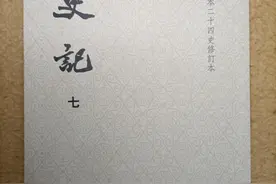 本二十四史修訂本
史記
七